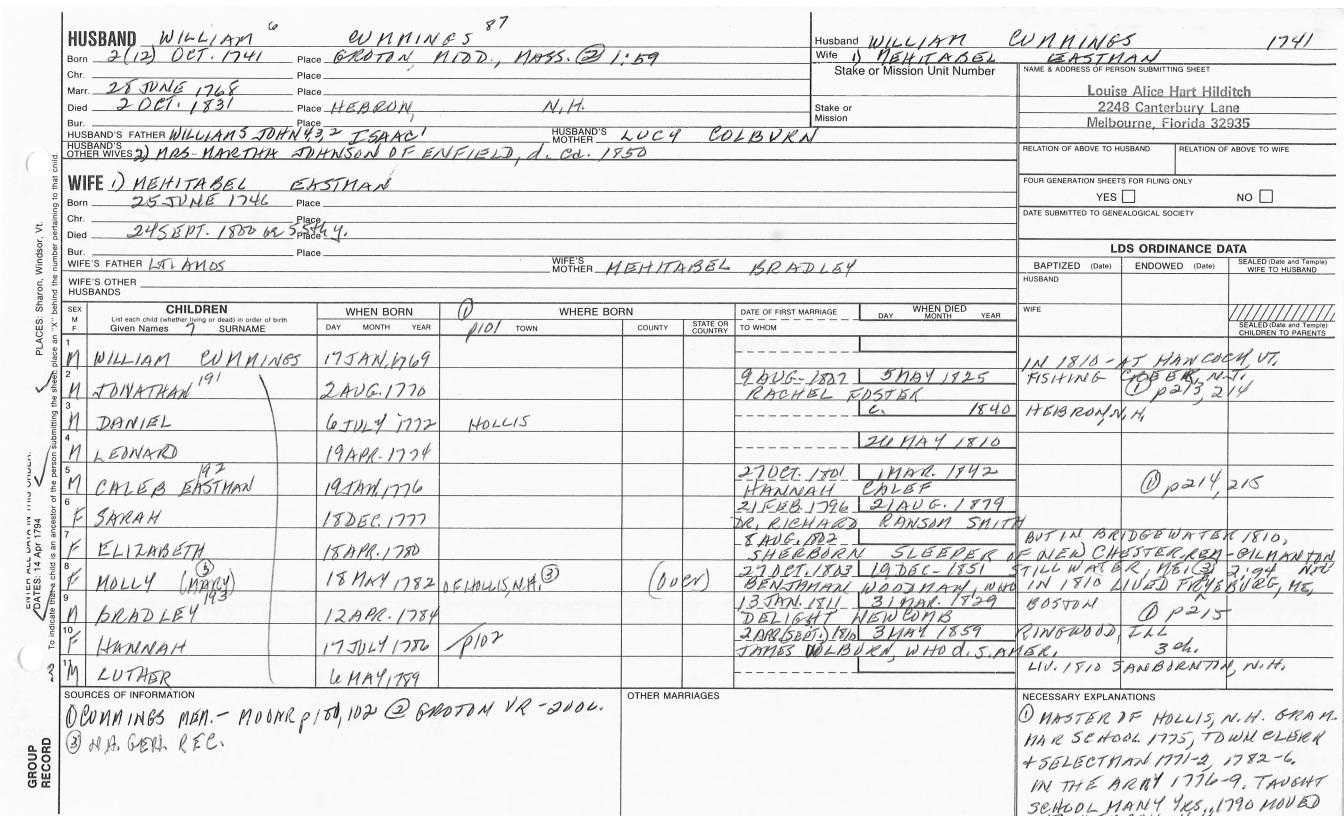 HUSBAND WILLIAM 6 CUMMINGS 87
Born 2(12) OCT. 1741 Place GROTON MIDD., MASS. ② 1:59
Chr. Place
Marr. 28 JUNE 1768 Place
Died 2 OCT. 1831 Place HEBRON, N.H.
Bur. Place
HUSBAND'S FATHER WILLIAM5 JOHN4,3,2 ISAAC1 HUSBAND'S MOTHER LUCY COLBURN
HUSBAND'S OTHER WIVES 2) MRS. MARTHA JOHNSON OF ENFIELD, d. Cd. 1850
WIFE 1) MEHITABEL EASTMAN
Born 25 JUNE 1746 Place
Chr. Place
Died 24 SEPT. 1800 ae 55th y. Place
Bur. Place
WIFE'S FATHER LT. AMOS WIFE'S MOTHER MEHITABEL BRADLEY
WIFE'S OTHER HUSBANDS
Husband WILLIAM CUMMINGS 1741
Wife 1) MEHITABEL EASTMAN
Stake or Mission Unit Number
Stake or Mission
NAME & ADDRESS OF PERSON SUBMITTING SHEET
Louise Alice Hart Hilditch
2248 Canterbury Lane
Melbourne, Florida 32935
RELATION OF ABOVE TO HUSBAND RELATION OF ABOVE TO WIFE
FOUR GENERATION SHEETS FOR FILING ONLY
YES NO
DATE SUBMITTED TO GENEALOGICAL SOCIETY
LDS ORDINANCE DATA
BAPTIZED (Date) ENDOWED (Date) SEALED (Date and Temple) WIFE TO HUSBAND
HUSBAND
WIFE
SEALED (Date and Temple) CHILDREN TO PARENTS
SEX M F CHILDREN WHEN BORN ① WHERE BORN DATE OF FIRST MARRIAGE WHEN DIED
List each child (whether living or dead) in order of birth
Given Names 7 SURNAME DAY MONTH YEAR p101 TOWN COUNTY STATE OR COUNTRY TO WHOM DAY MONTH YEAR
1 M WILLIAM CUMMINGS 17 JAN. 1769 IN 1810 - AT HANCOCK, VT.
2 M JONATHAN 191 2 AUG. 1770 9 AUG. 1802 5 MAY 1825 FISHING CREEK, N.J.
RACHEL FOSTER ① p213, 214
3 M DANIEL 6 JULY 1772 HOLLIS c. 1840 HEBRON, N.H.
4 M LEONARD 19 APR. 1774 26 MAY 1810
5 M CALEB EASTMAN 192 19 JAN. 1776 27 OCT. 1801 1 MAR. 1842
HANNAH CALEF ① p214, 215
6 F SARAH 18 DEC. 1777 21 FEB. 1796 21 AUG. 1879
DR. RICHARD RANSOM SMITH
7 F ELIZABETH 18 APR. 1780 8 AUG. 1802 BUT IN BRIDGEWATER 1810,
SHERBORN SLEEPER OF NEW CHESTER, REM - GILMANTON
8 F MOLLY (MARY) ③ 18 MAY 1782 OF HOLLIS, N.H. ③ (over) 27 OCT. 1803 19 DEC. 1851 STILLWATER, ME; ③ 2:94
BENJAMAN WOODMAN, WHO IN 1810 LIVED FRYEBURG, ME,
9 M BRADLEY 193 12 APR. 1784 13 JAN. 1811 31 MAR. 1829 BOSTON
DELIGHT NEWCOMB ① p215
10 F HANNAH 17 JULY 1786 p102 2 APR (SEPT.) 1810 3 MAY 1859 RINGWOOD, ILL
JAMES WILBURN, WHO d. S. AMER. 3 ch.
11 M LUTHER 6 MAY, 1789 LIV. 1810 SANBORNTON, N.H.
SOURCES OF INFORMATION
① CUMMINGS MEM. - MOONR p100, 102 ② GROTON VR - 2vol.
③ N.H. GEN. REC.
OTHER MARRIAGES
NECESSARY EXPLANATIONS
① MASTER OF HOLLIS, N.H. GRAM-
MAR SCHOOL 1775, TOWN CLERK
+ SELECTMAN 1771-2, 1782-6.
IN THE ARMY 1776-9. TAUGHT
SCHOOL MANY YRS., 1790 MOVED
PLACES: Sharon, Windsor, Vt.
ENTER ALL DATA IN THIS ORDER:
DATES: 14 Apr 1794
To indicate that a child is an ancestor of the person submitting the sheet, place an "X" behind the number pertaining to that child.
GROUP RECORD